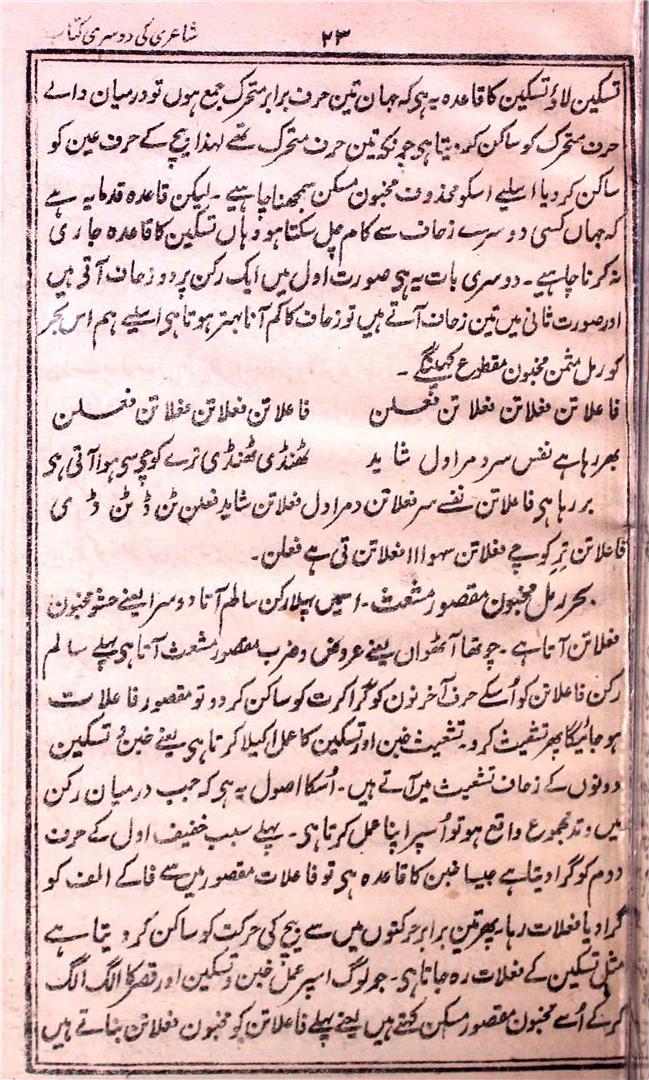 شاعری کی دوسری کتاب
۲۳
تسکین لاؤ تسکین کا قاعدہ یہ ہی کہ جہان تین حرف برابر متحرک جمع ہوں تو درمیان والے
حرف متحرک کو ساکن کر دیتا ہی چونکہ تین حرف متحرک تھے لہذا بیچ کے حرف عین کو
ساکن کر دیا اسلیے اسکو محذوف مخبون مسکن سمجھنا چاہیے ۔ لیکن قاعدہ قدما یہ ہے
کہ جہاں کسی دوسرے زحاف سے کام چل سکتا ہو وہاں تسکین کا قاعدہ جاری
نہ کرنا چاہیے ۔ دوسری بات یہ ہی صورت اول میں ایک رکن پر دو زحاف آتی ہیں
اور صورت ثانی میں تین زحاف آتے ہیں تو زحاف کا کم آنا بہتر ہوتا ہی اسلیے ہم اس بحر
کو رمل مثمن مخبون مقطوع کہینگے ۔
فاعلاتن فعلاتن فعلاتن فعلن فاعلاتن فعلاتن فعلاتن فعلن
بھر رہا ہے نفس سرد مرا دل شاید ٹھنڈی ٹھنڈی ترے کوچے سی ہوا آتی ہی
بر رہا ہی فاعلاتن نفسے سر فعلاتن دمرا دل فعلاتن شاید فعلن ٹن ڈ ٹن ڈ ی
فاعلاتن ترِ کوچے فعلاتن سہوا اا فعلاتن تی ہے فعلن ۔
بحر رمل مخبون مقصور مشعث ۔ اسمیں پہلا رکن سالم آتا دوسرا یعنے حشو مخبون
فعلاتن آتا ہے ۔ چوتھا آٹھواں یعنے عروض و ضرب مقصور مشعث آتا ہی پہلے سالم
رکن فاعلاتن کو اُسکے حرف آخر نون کو گرا کرت کو ساکن کر دو تو مقصور فاعلات
ہو جائیگا پھر تشعیث کرو ۔ تشعیث خبن اور تسکین کا عمل اکیلا کرتا ہی یعنے خبن و تسکین
دونوں کے زحاف تشعیث میں آتے ہیں ۔ اُسکا اصول یہ ہی کہ جب درمیان رکن
میں وتد مجموع واقع ہو تو اُسپر اپنا عمل کرتا ہی ۔ پہلے سبب خفیف اول کے حرف
دوم کو گرا دیتا ہے جیسا خبن کا قاعدہ ہی تو فاعلات مقصور میں سے فا کے الف کو
گرا دیا فعلات رہا ۔ پھر تین برابر حرکتوں میں سے بیچ کی حرکت کو ساکن کر دیتا ہے
مثل تسکین کے فعلات رہ جاتا ہی ۔ جو لوگ اسپر عمل خبن و تسکین اور قصر کا الگ الگ
کر کے اُسے مخبون مقصور مسکن کہتے ہیں یعنے پہلے فاعلاتن کو مخبون فعلاتن بناتے ہیں